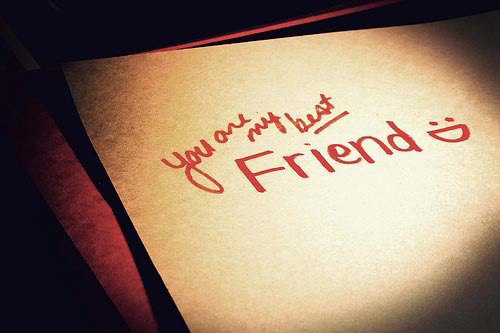 You are my best
Friend :D